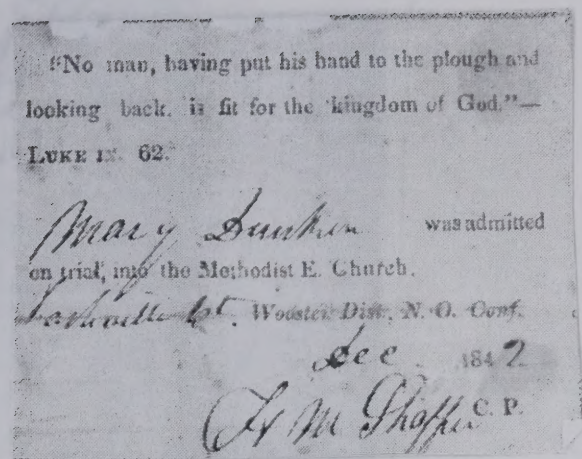 "No man, having put his hand to the plough and
looking back. is fit for the kingdom of God."—
LUKE IX. 62.
Mary was admitted
on trial, into the Methodist E. Church.
Wooster Dist. N. O. Conf.
Dec 1842.
H M Shaffer C. P.